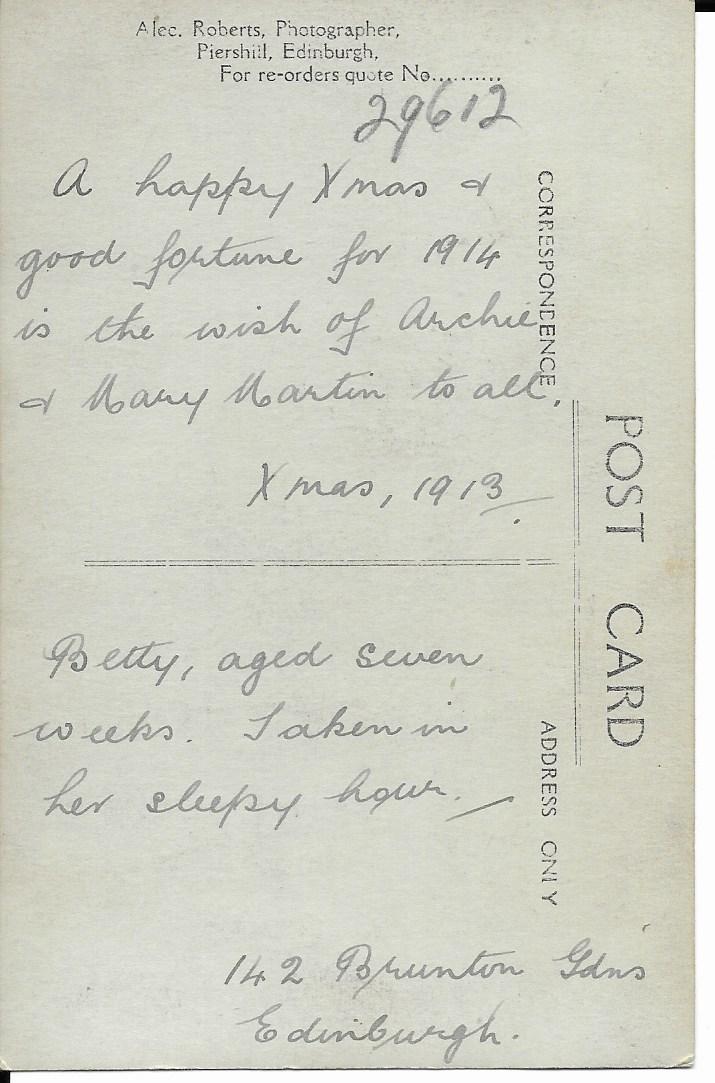 Alec. Roberts, Photographer,
Piershill, Edinburgh,
For re-orders quote No..........
29612
A happy Xmas &
good fortune for 1914
is the wish of Archie
& Mary Martin to all.
Xmas, 1913.
CORRESPONDENCE
POST CARD
Betty, aged seven
weeks. Taken in
her sleepy hour.
ADDRESS ONLY
142 Brunton Gdns
Edinburgh.